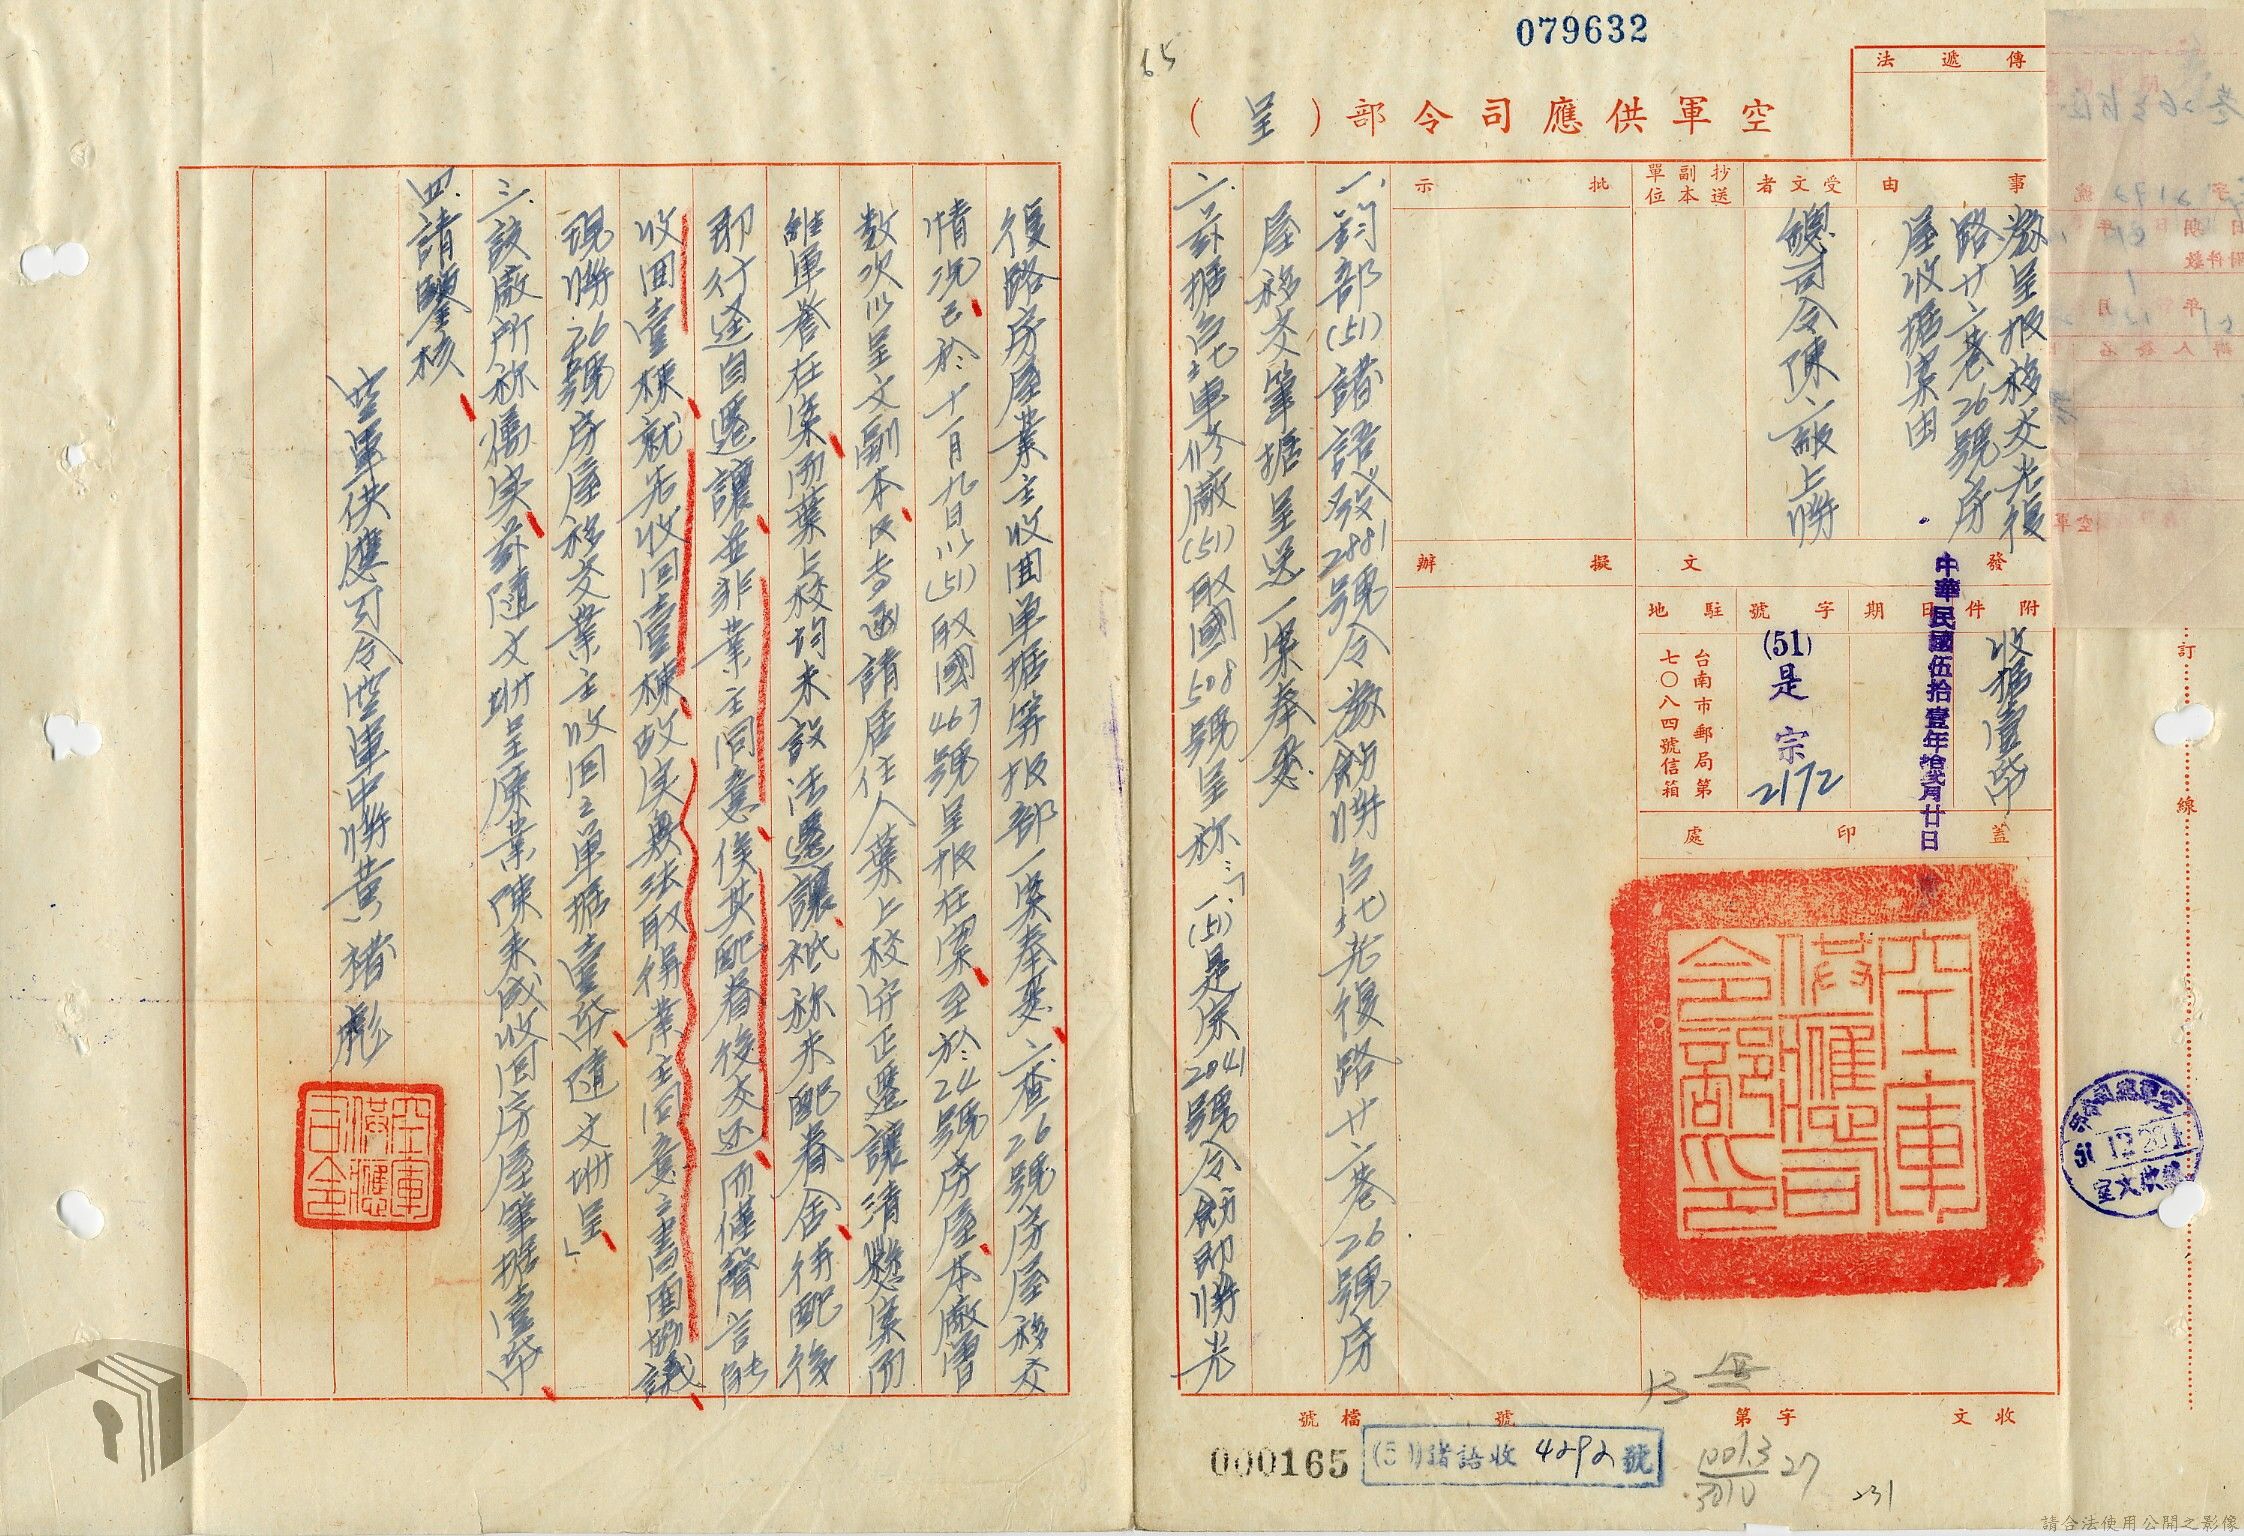 079632
65
傳遞法
空軍供應司令部（呈）
事由
茲呈报移交光復
路廿六巷26號房
屋收据案由
受文者
總司令陳一級上將
抄送副本單位
批示
擬辦
發文
附件
收據壹帋
日期
中華民國伍拾壹年拾貳月廿日
字號
(51)是宗2172
駐地
台南市郵局第
七〇八四號信箱
蓋印處
空軍供應司令部印
一、鈞部(51)諸語發2881號令茲飭將台北光復路廿六巷26號房
屋移交筆据呈送一案奉悉
二、茲据台北車修廠(51)取國508號呈称：「一、(51)是宗2041號令飭即將光
復路房屋業主收回單据等报部一案奉悉二、查26號房屋移交
情況已於十一月九日以(51)取國467號呈报在案至於24號房屋本廠曾
数次以呈文副本及专函請居住人葉上校守正遷讓清懸案而
維軍誉在案而葉上校均未設法遷讓衹称未配眷舍待配後
即行逕自遷讓並非業主同意俟其配眷後交还而僅聲言能
收回壹棟就先收回壹棟故实無法取得業主同意之書面協議
現將26號房屋移交業主收回之單据壹帋隨文坿呈」
三、該廠所称僑实茲隨文坿呈原業陳来成收回房屋筆据壹帋
四、請鑒核
空軍供應司令空軍中將黃褚彪
空軍供應司令
訂線
51.12.20
總收文室
收文
字第
號
檔號
000165
(51)諸語收4292號
13
1001.3
3010
27
231
請合法使用公開之影像